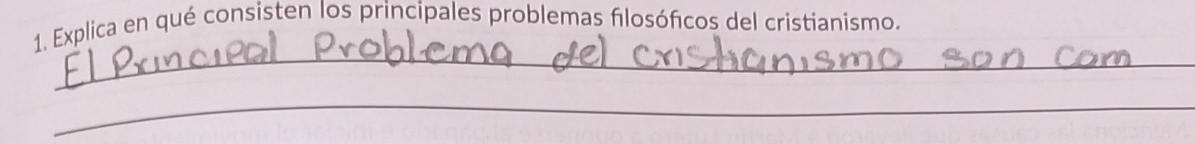 1. Explica en qué consisten los principales problemas filosóficos del cristianismo.
El Principal Problema del cristianismo son com